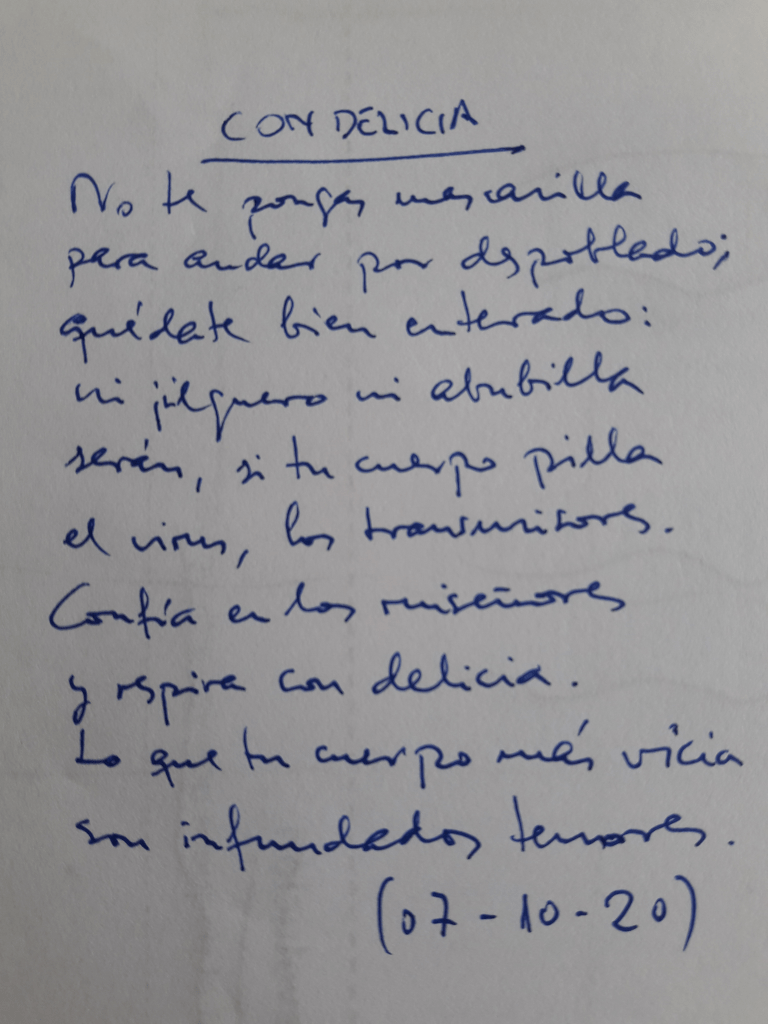 CON DELICIA
No te pongas mascarilla
para andar por despoblado;
quédate bien enterado:
ni jilguero ni abubilla
serán, si tu cuerpo pilla
el virus, los transmisores.
Confía en los ruiseñores
y respira con delicia.
Lo que tu cuerpo más vicia
son infundados temores.
(07-10-20)